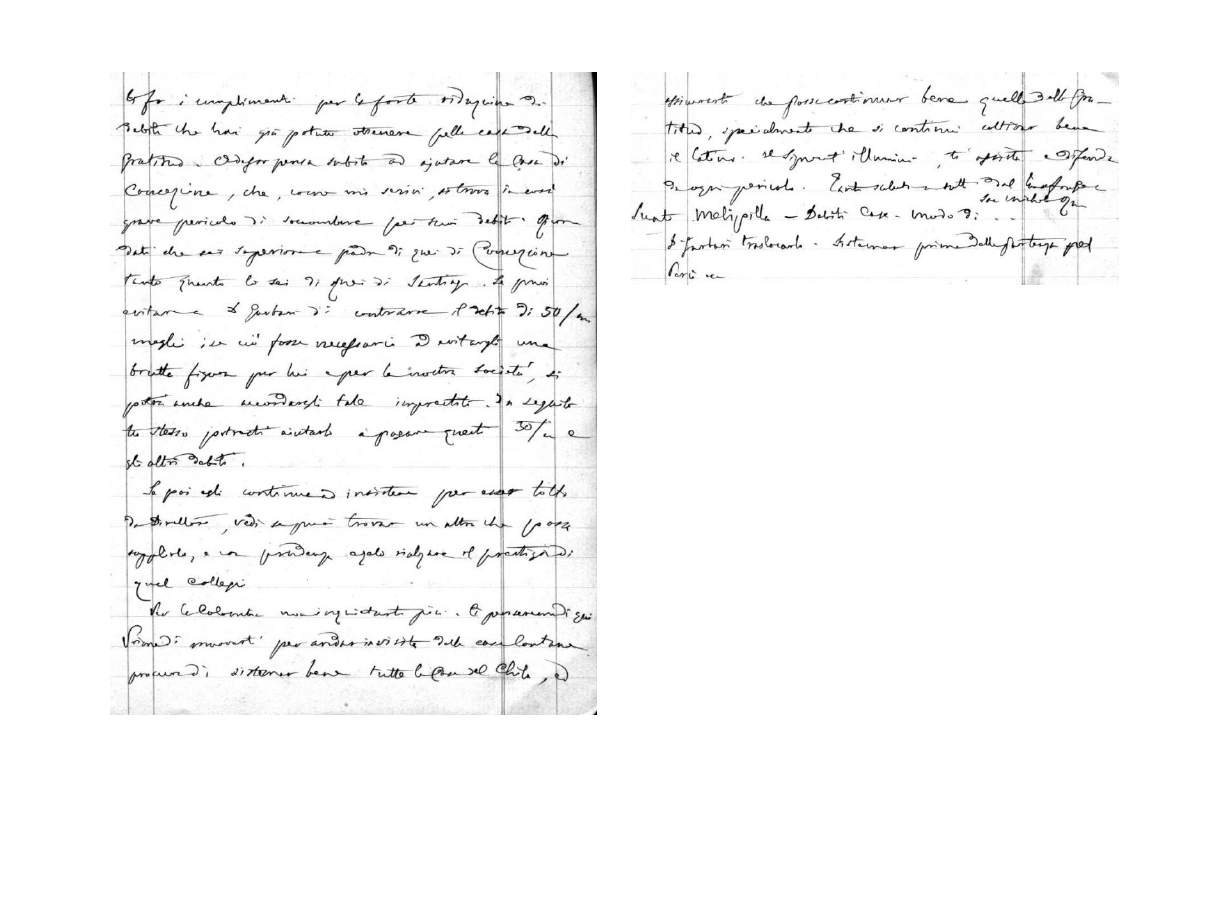 ti fo i complimenti per la forte riduzione di
debiti che hai già potuto ottenere pella casa della
Gratitud. Ora pensa subito ad ajutare la Casa di
Concezione, che, come mi scrivi, si trova in così
grave pericolo di soccombere per suoi debiti.
dati che sei superiore e padre di quei di Concezione
tanto quanto lo sei di quei di Santiago. Se puoi
evitare a D. Gustavi di contrarre il debito di 50/m
meglio; se ciò fosse necessario ad evitargli una
brutta figura per lui e per la nostra Società, si
potrà anche accordargli tale imprestito. In seguito
tu stesso potresti aiutarlo a pagare questi 30/m e
gli altri debiti.
Se poi egli continua ad insistere per esser tolto
da Direttore, vedi se puoi trovar un altro che possa
supplirlo, e con prudenza egli rialzare il prestigio di
quel collegio
Per la Colomba non inquietarti più. Ci penseremo di qui
Prima di muoverti per andar in visita delle case lontane
procura di sistemar bene tutte le Case del Chilì, ed
assicurarti che possa continuar bene quella della Gra-
titud, specialmente che si continui a coltivar bene
il latino. Il Signore t'illumini, ti assista e difenda
da ogni pericolo. Tanti saluti a tutti dal
Sunto Melipilla – Debiti Case – modo di ...
D. traslocarlo. Sistemar prima della partenza